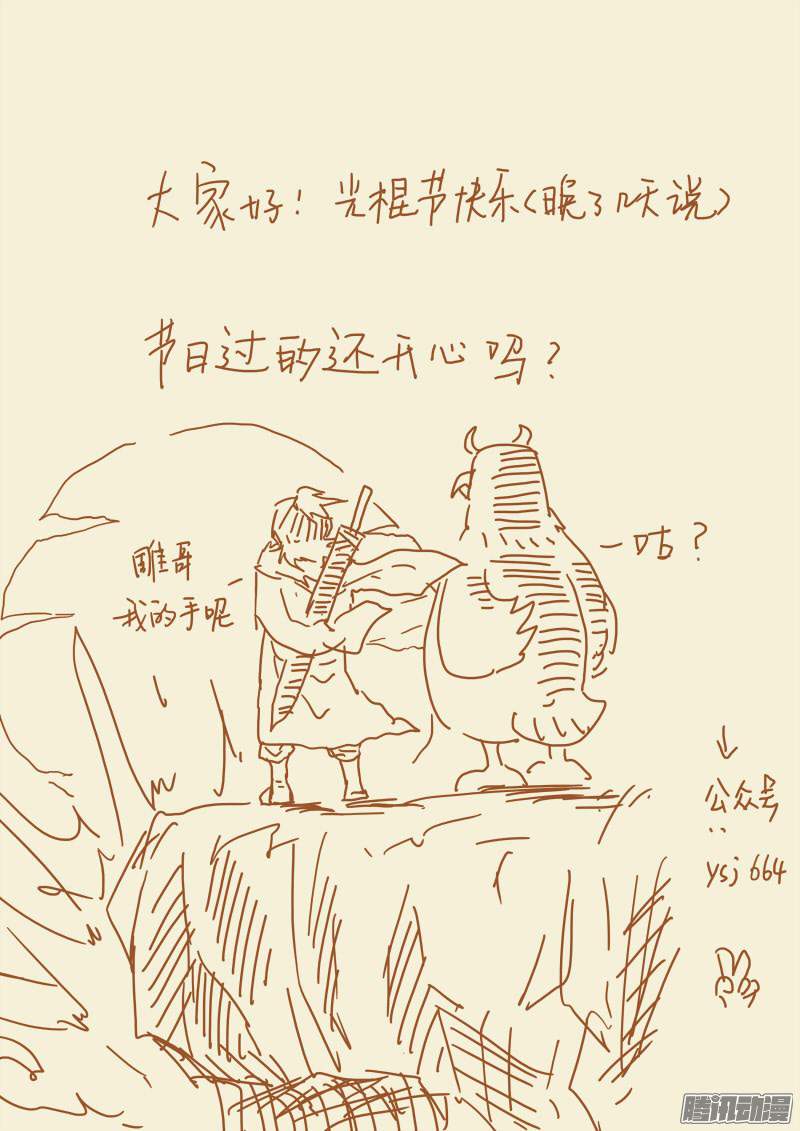 大家好！光棍节快乐（晚了呋说）
节日过的还开心吗？
雕哥
我的手呢
咕？
公众号
：
ysj 664
腾讯动漫